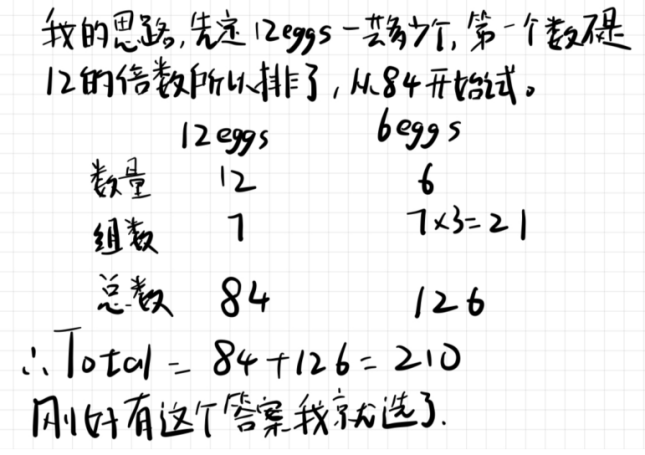 我的思路,先定12eggs一共多少个,第一个数不是
12的倍数所以排了,从84开始试。
12eggs 6eggs
数量 12 6
组数 7 7×3=21
总数 84 126
∴Total = 84+126=210
刚好有这个答案我就选了.